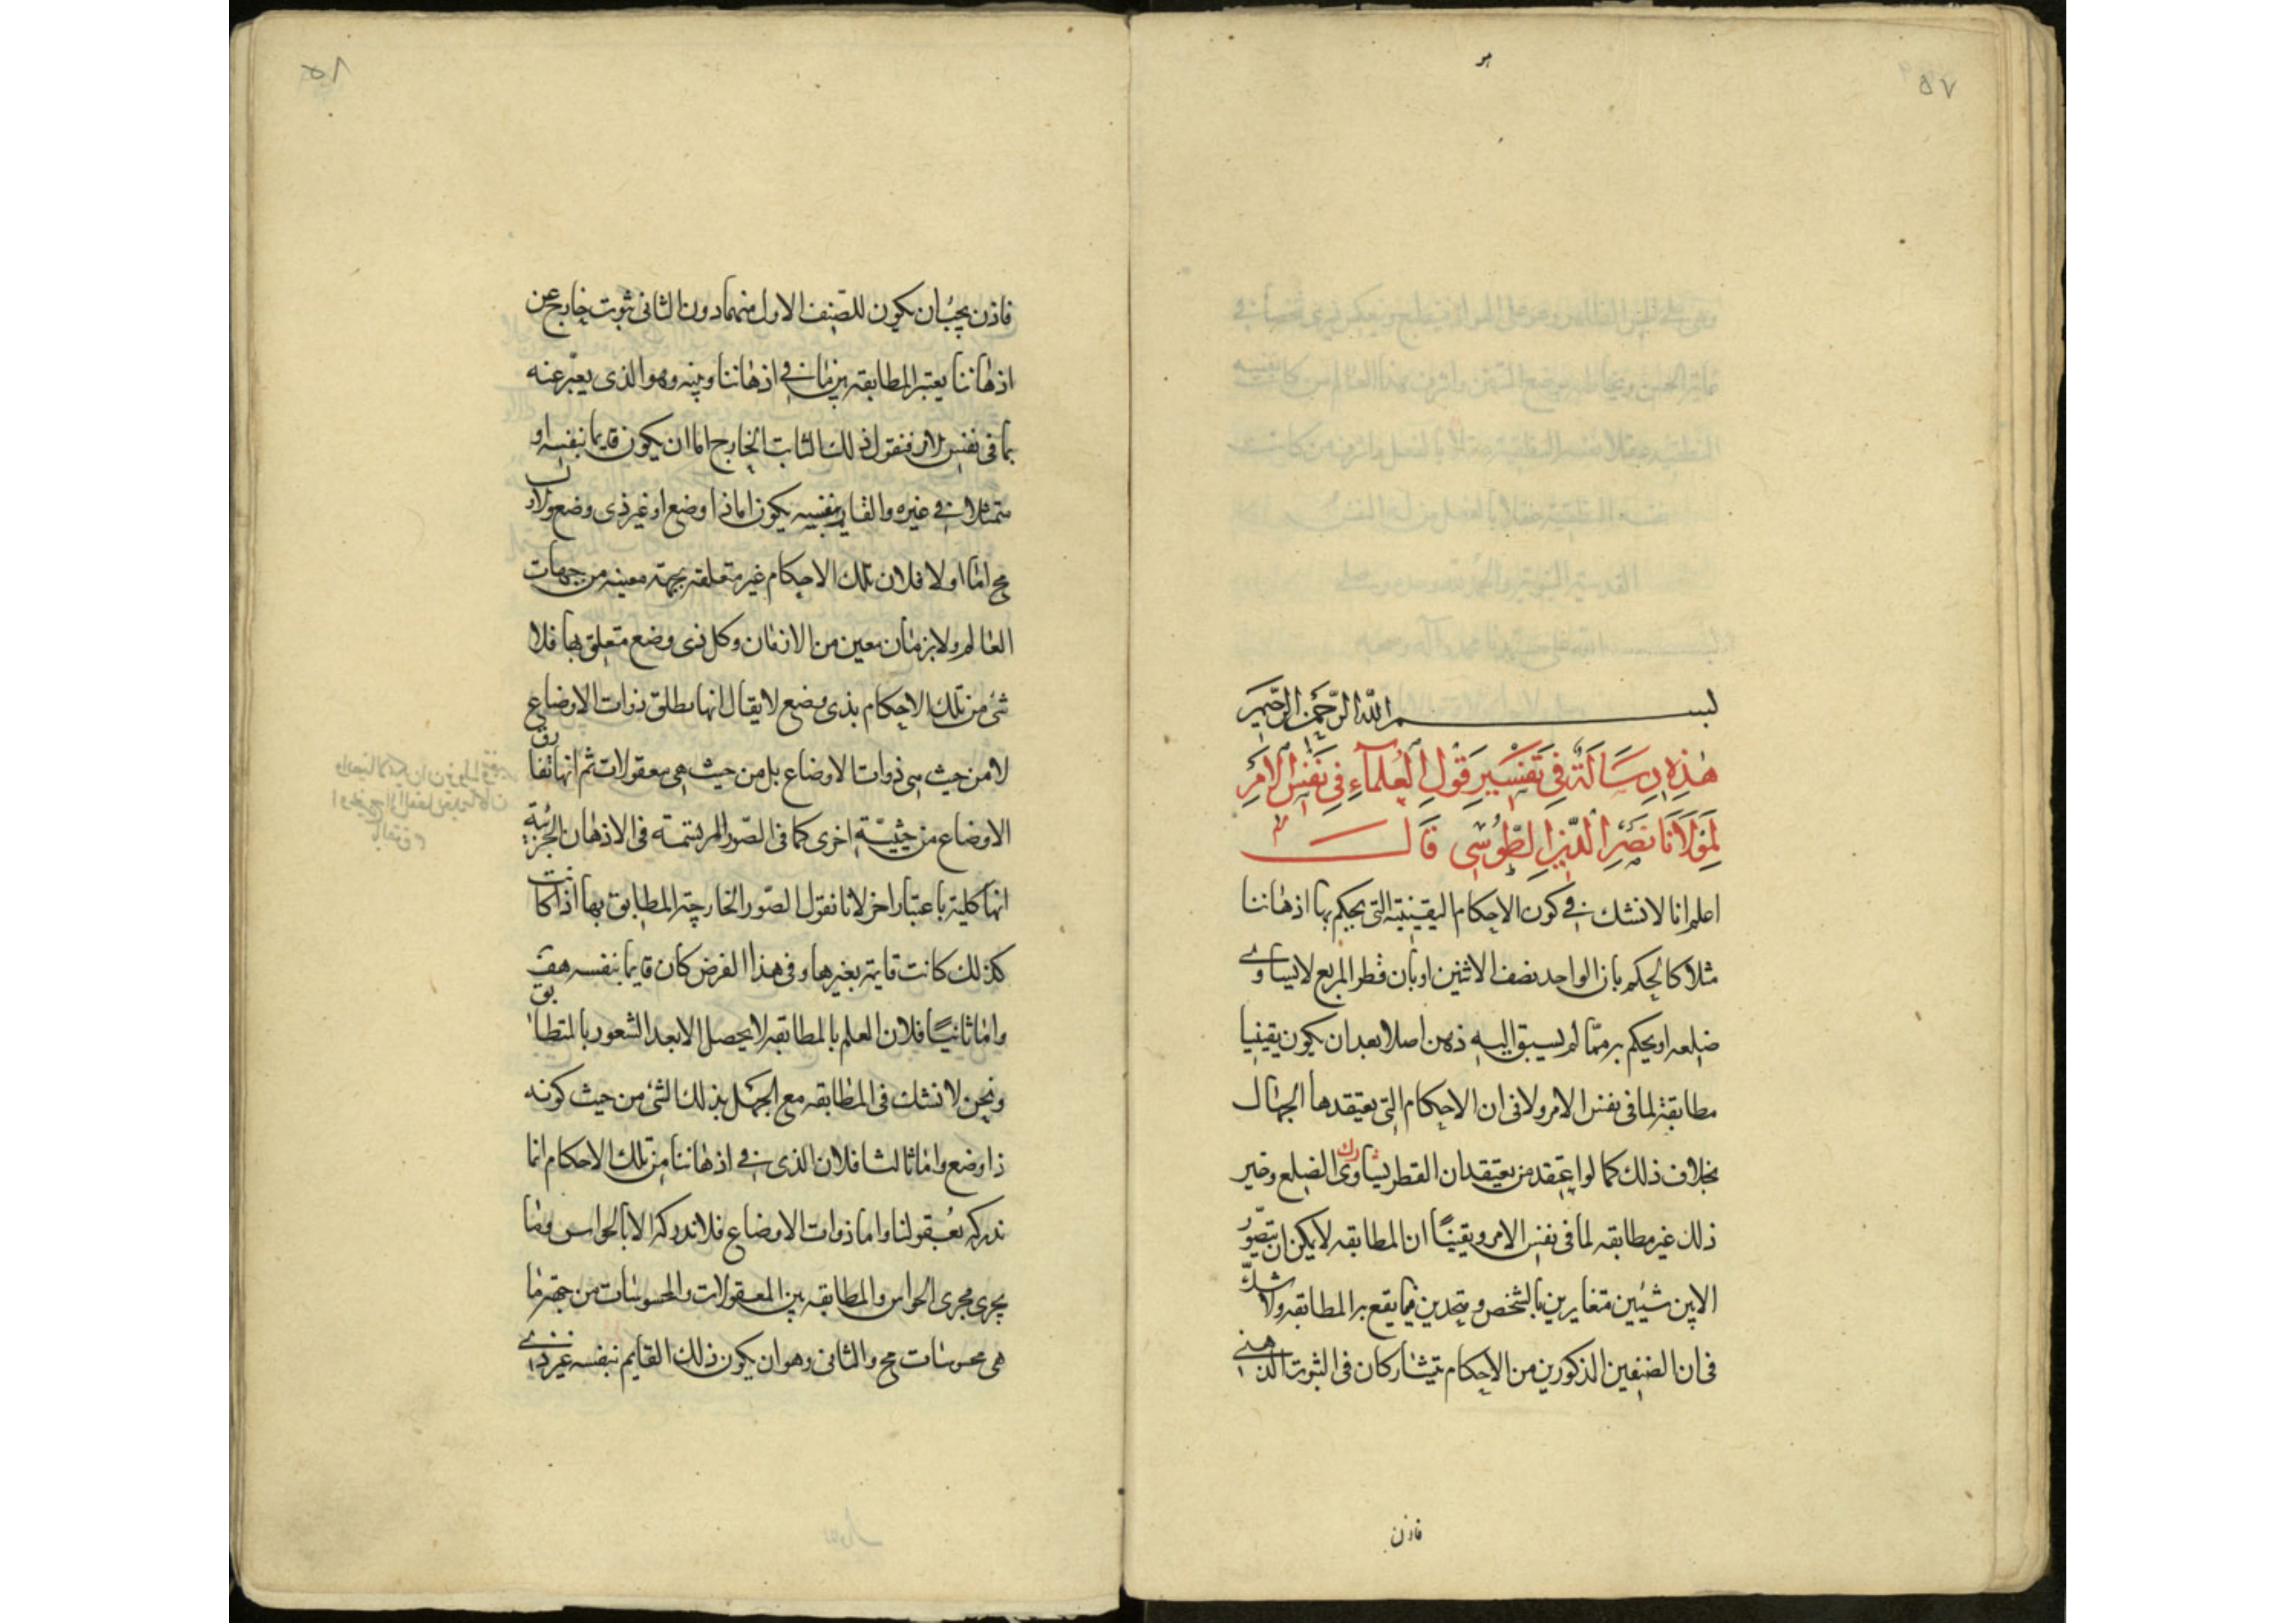 ٥٧
بسم الله الرحمن الرحيم
هٰذِهِ رِسَالَةٌ فِي تَفْسِيرِ قَوْلِ الْعُلَمَاءِ فِي نَفْسِ الْاَمْرِ
لِمَوْلَانَا نَصِيْرِ الدِّيْنِ الطُّوْسِي قَالَ
اعلم انا لا نشك فى كون الاحكام اليقينية التى يحكم بها اذهاننا
مثلا كالحكم بان الواحد نصف الاثنين او بان قطر المربع لا يساوى
ضلعه او يحكم به مما لم يسبق اليه ذهن اصلا بعد ان يكون يقينيا
مطابقة لما فى نفس الامر ولا فى ان الاحكام التى يعتقدها الجهال
بخلاف ذلك كما لو اعتقد من يعتقد ان القطر يساوى الضلع وغير
ذلك غير مطابقه لما فى نفس الامر ويقينًا ان المطابقه لا يمكن ان يتصوّر
الا بين شيئين متغايرين بالشخص ومتحدين فيما يقع به المطابقه ولا شكّ
فى ان الصنفين المذكورين من الاحكام يتشاركان فى الثبوت الذهنى
فاذن
فاذن يجب ان يكون للصّنف الاول منهما دون الثانى ثبوت خارج عن
اذهاننا يعتبر المطابقه بين ما فى اذهاننا وبينه وهو الذى يعبّر عنه
بما فى نفس الامر فنقول ذلك الثابت الخارج اما ان يكون قايما بنفسه او
متمثلا فى غيره والقايم بنفسه يكون اما ذا وضع او غير ذى وضع والاول
مح اما اولا فلان تلك الاحكام غير متعلقه بجهة معينه من جهات
العالم ولا بزمان معين من الازمان وكل ذى وضع متعلق بها فلا
شئ من تلك الاحكام بذى وضع لا يقال انها مطلق ذوات الاوضاع
لا من حيث هى ذوات الاوضاع بل من حيث هى معقولات ثم انها تفارق
الاوضاع من حيثيّة اخرى كما فى الصّور المرتسمة فى الاذهان الجزئية
انها كلية باعتبار اخر لانا نقول الصّور الخارجية المطابق بها اذا كانت
كذلك كانت قايمة بغيرها وفى هذا الفرض كان قايما بنفسه هف
واما ثانيًا فلان العلم بالمطابقه لا يحصل الا بعد الشعور بالمتطابقين
ونحن لا نشك فى المطابقه مع الجهل بذلك الشئ من حيث كونه
ذا وضع واما ثالثا فلان الذى فى اذهاننا من تلك الاحكام انما
ندركه بعقولنا واما ذوات الاوضاع فلا ندركه الا بالحواس وما
يجرى مجرى الحواس والمطابقه بين المعقولات والمحسوسات من جهة ما
هى محسوسات مح والثانى وهو ان يكون ذلك القايم بنفسه غير ذى